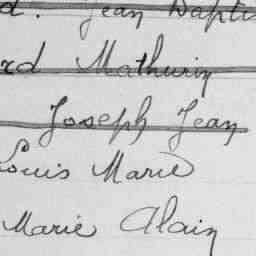 d. Jean Baptis
rd Mathurin
Joseph Jean
Louis Marie
Marie Alain